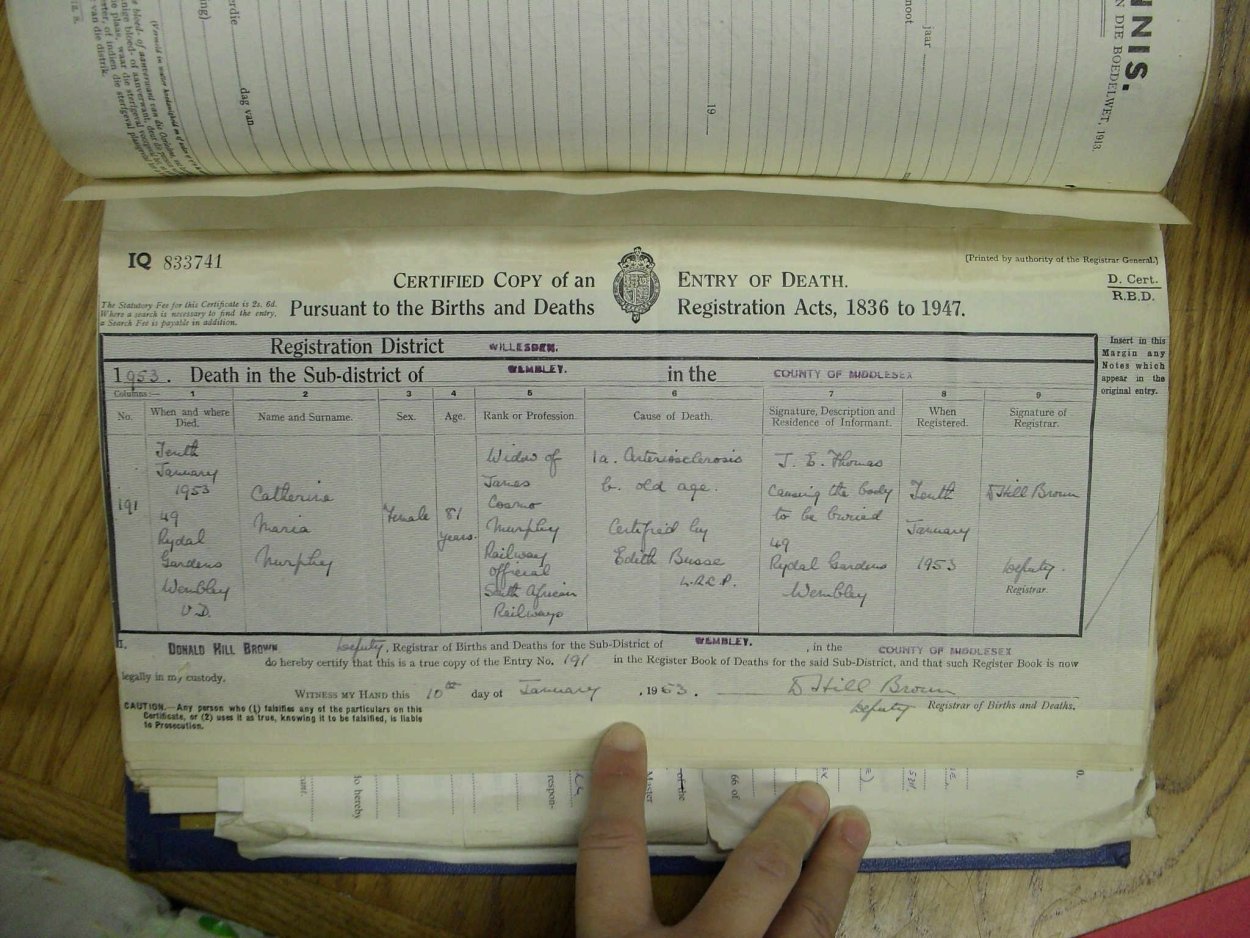 NNIS.
N DIE BOEDELWET, 1913.
noot
jaar
19
dag van
erdie
ing)
van die distrik.
IQ 833741
[Printed by authority of the Registrar General.]
CERTIFIED COPY of an ENTRY OF DEATH.
D. Cert.
R.B.D.
The Statutory Fee for this Certificate is 2s. 6d.
Where a search is necessary to find the entry,
a Search Fee is payable in addition.
Pursuant to the Births and Deaths Registration Acts, 1836 to 1947.
Registration District WILLESDEN.
Insert in this
Margin any
Notes which
appear in the
original entry.
1953. Death in the Sub-district of WEMBLEY. in the COUNTY OF MIDDLESEX
Columns:— 1 2 3 4 5 6 7 8 9
No.
When and where
Died.
Name and Surname.
Sex.
Age.
Rank or Profession.
Cause of Death.
Signature, Description and
Residence of Informant.
When
Registered.
Signature of
Registrar.
191
Tenth
January
1953
49
Rydal
Gardens
Wembley
U.D.
Catherine
Maria
Murphy
Female
81
years.
Widow of
James
Cosmo
Murphy
Railway
Official
South African
Railways
1a. Arteriosclerosis
b. old age.
Certified by
Edith Busse
L.R.C.P.
J. E. Thomas
Causing the body
to be buried
49
Rydal Gardens
Wembley
Tenth
January
1953
D Hill Brown
Deputy.
Registrar.
I, DONALD HILL BROWN Deputy, Registrar of Births and Deaths for the Sub-District of WEMBLEY. , in the COUNTY OF MIDDLESEX
do hereby certify that this is a true copy of the Entry No. 191 in the Register Book of Deaths for the said Sub-District, and that such Register Book is now
legally in my custody.
WITNESS MY HAND this 10th day of January , 1953. D Hill Brown
Deputy Registrar of Births and Deaths.
CAUTION.—Any person who (1) falsifies any of the particulars on this
Certificate, or (2) uses it as true, knowing it to be falsified, is liable
to Prosecution.
do hereby
respon-
Master
of the
66 of